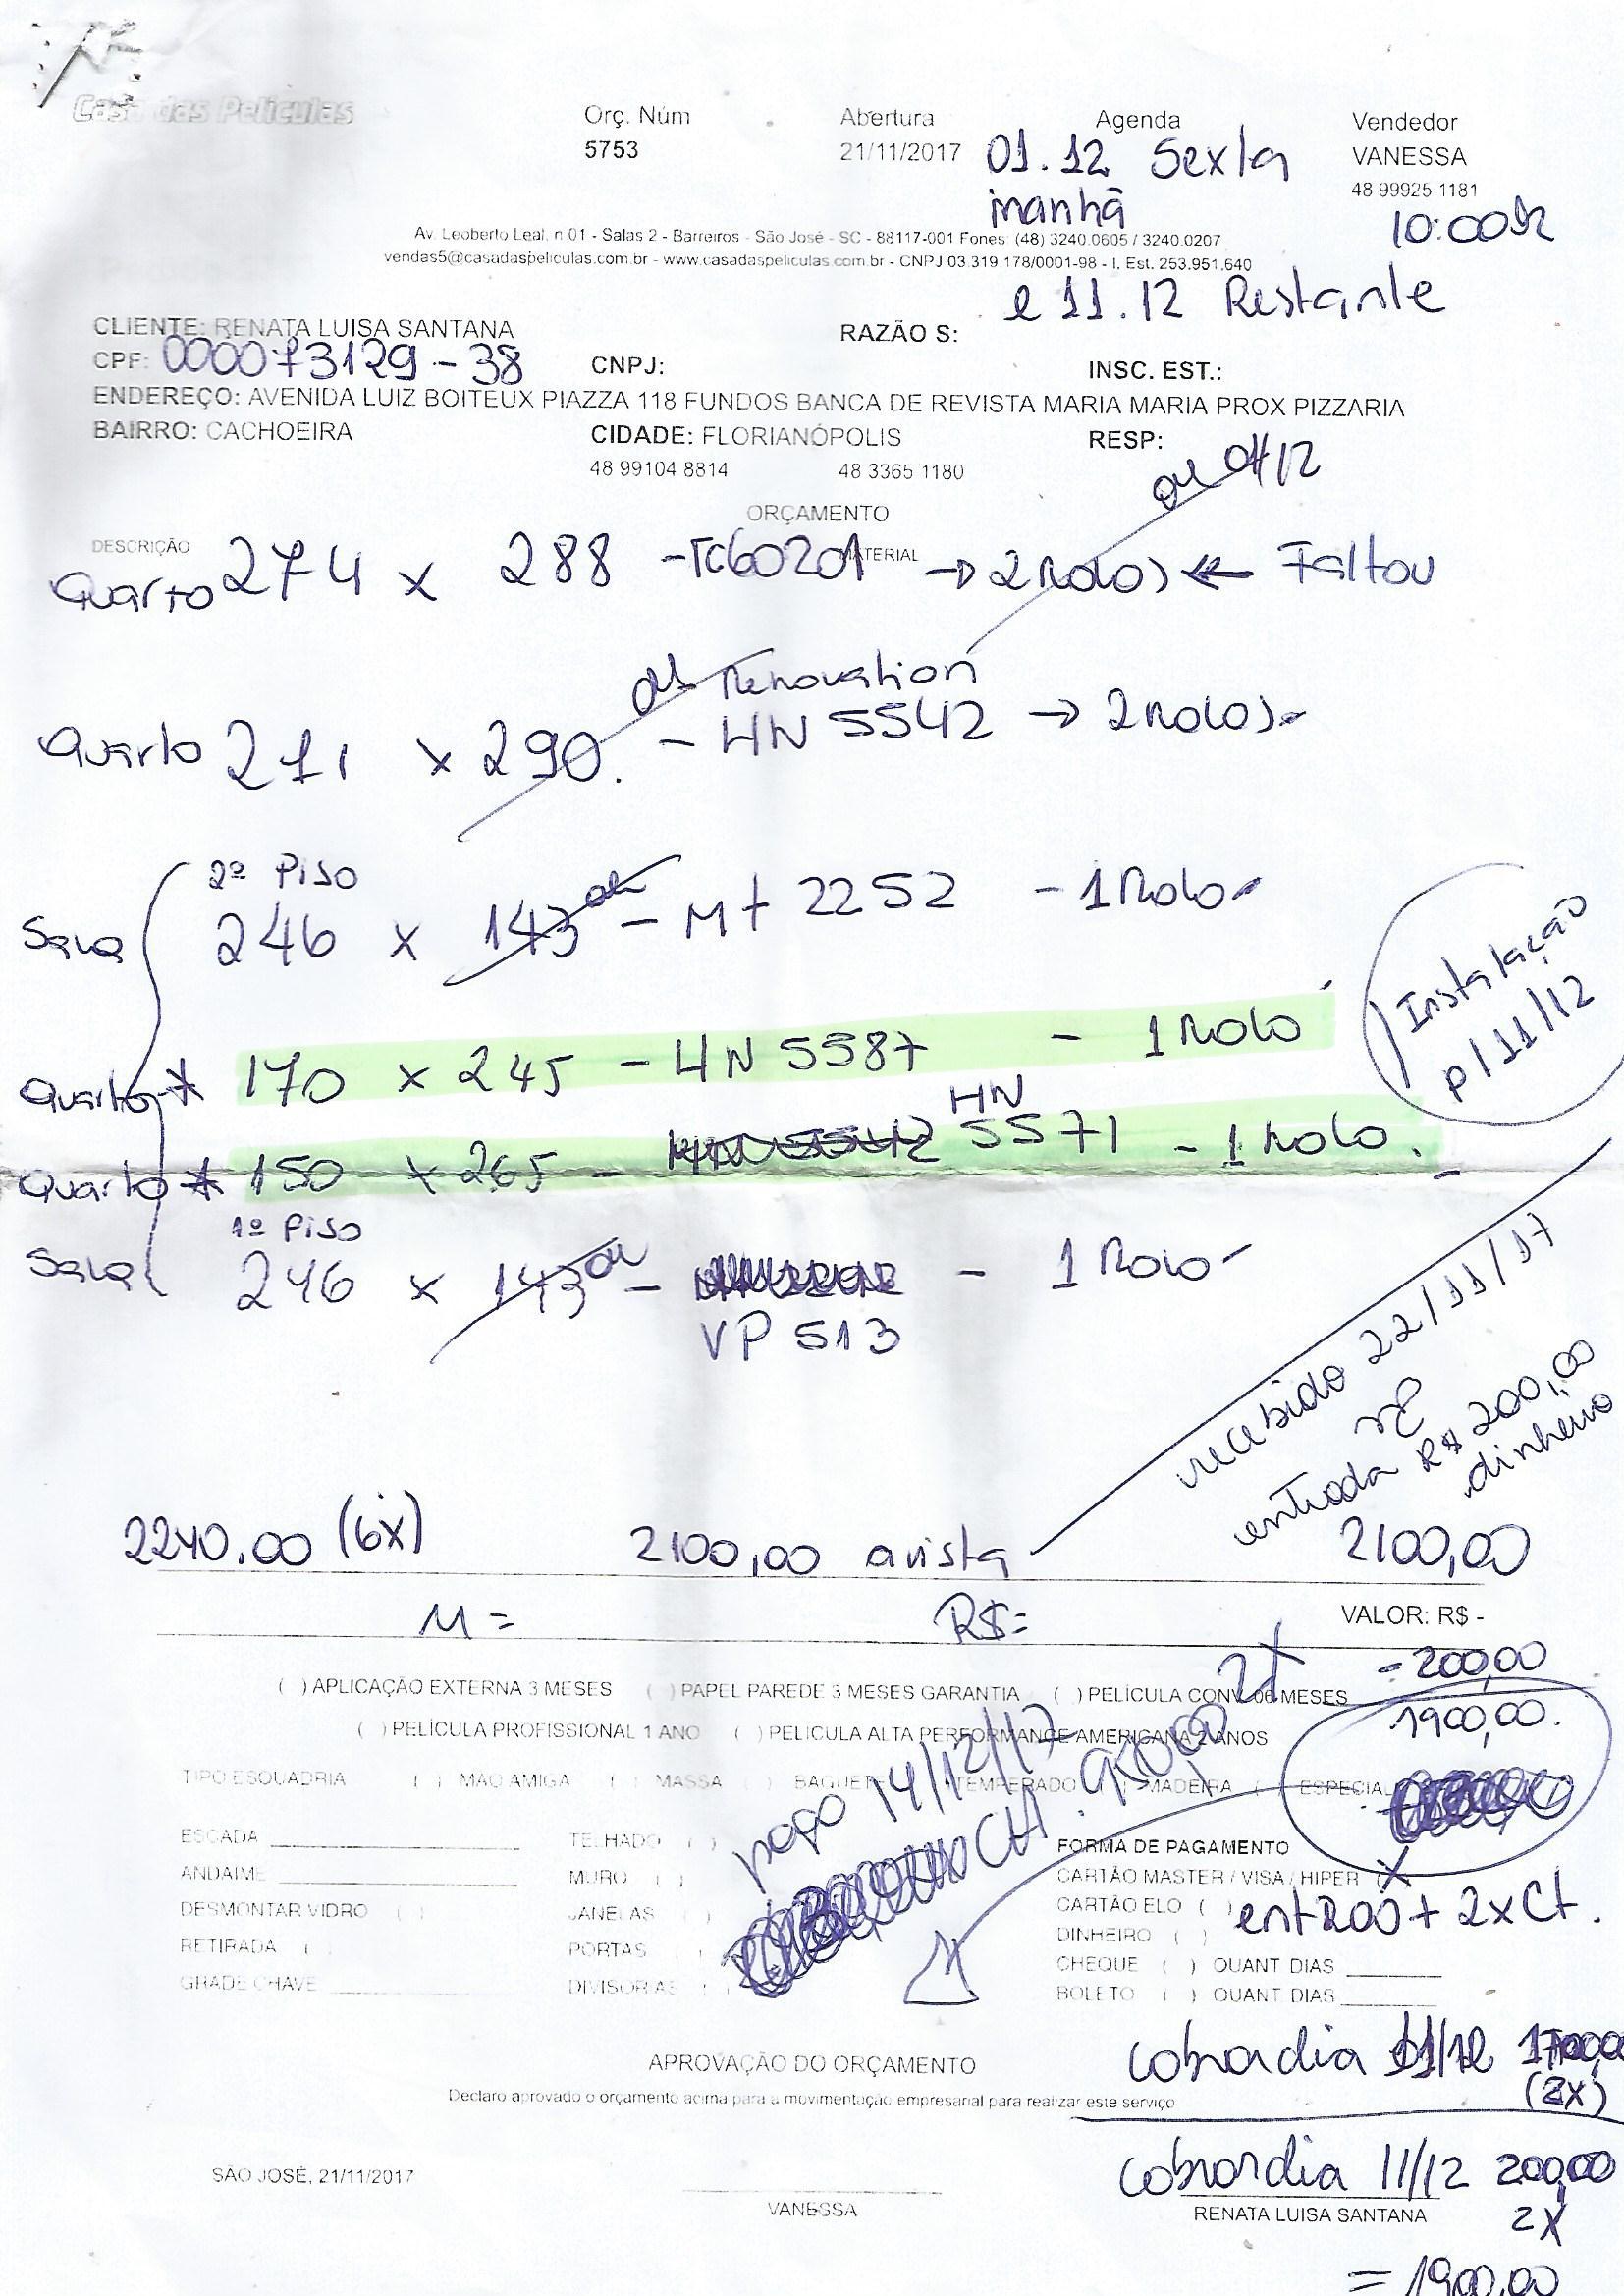 Casa das Películas
Orç. Núm Abertura Agenda Vendedor
5753 21/11/2017 01.12 Sexta VANESSA
manhã 48 99925 1181
10:00
Av. Leoberto Leal, n 01 - Salas 2 - Barreiros - São José - SC - 88117-001 Fones: (48) 3240.0605 / 3240.0207
vendas5@casadaspeliculas.com.br - www.casadaspeliculas.com.br - CNPJ 03.319.178/0001-98 - I. Est. 253.951.640
e 11.12 Restante
CLIENTE: RENATA LUISA SANTANA RAZÃO S:
CPF: 000073129-38 CNPJ: INSC. EST.:
ENDEREÇO: AVENIDA LUIZ BOITEUX PIAZZA 118 FUNDOS BANCA DE REVISTA MARIA MARIA PROX PIZZARIA
BAIRRO: CACHOEIRA CIDADE: FLORIANÓPOLIS RESP:
48 99104 8814 48 3365 1180
ORÇAMENTO
DESCRIÇÃO MATERIAL
Quarto 274 x 288 - TC60201 → 2 Rolos ← Faltou
ok Renovation
Quarto 271 x 290. - HN 5542 → 2 Rolos -
2º Piso
Sala 246 x 143 ok - Mt 2252 - 1 Rolo -
Instalação
p/ 11/12
Quarto * 170 x 245 - HN 5587 - 1 Rolo
Quarto * 150 x 265 - HN 5571 - 1 Rolo.
1º Piso
Sala 246 x 143 ok - - 1 Rolo -
VP 513
recebido 22/11/17
entrada R$ 200,00
dinheiro
2240.00 (6x) 2100,00 avista 2100,00
M = R$= VALOR: R$ -
- 200,00
( ) APLICAÇÃO EXTERNA 3 MESES ( ) PAPEL PAREDE 3 MESES GARANTIA ( ) PELÍCULA CONV. 06 MESES
1900,00.
( ) PELÍCULA PROFISSIONAL 1 ANO ( ) PELICULA ALTA PERFORMANCE AMERICANA 2 ANOS
TIPO ESQUADRIA ( ) MAO AMIGA ( ) MASSA ( ) BAQUET TEMPERADO ( ) MADEIRA ( ) ESPECIAL
pago 14/12/17
950,00 2x
ESCADA TELHADO ( ) FORMA DE PAGAMENTO
ANDAIME MURO ( ) CARTÃO MASTER / VISA / HIPER (X
DESMONTAR VIDRO ( ) JANELAS ( ) CARTÃO ELO ( )
ent 200 + 2x Ct.
RETIRADA ( PORTAS ( ) DINHEIRO ( )
GRADE CHAVE DIVISORIAS ( ) CHEQUE ( ) QUANT DIAS
BOLETO ( ) QUANT DIAS
cobra dia 11/12
(2x)
APROVAÇÃO DO ORÇAMENTO
Declaro aprovado o orçamento acima para a movimentação empresarial para realizar este serviço
cobrar dia 11/12 200,00
2x
SÃO JOSÉ, 21/11/2017 VANESSA RENATA LUISA SANTANA
= 1900,00